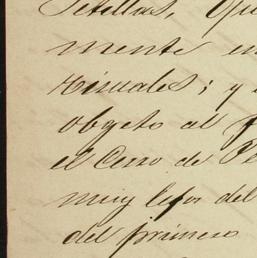 Petellas, que
mente en
Rituales; y
obgeto al
el Cerro de
muy lejos del
del primero